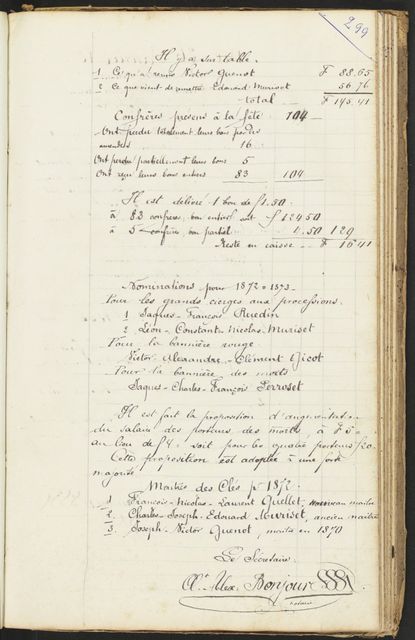 299
Il y a sur table.
1 Ce qu'a remis Victor Quenot F 88.65
2 Ce que vient de remettre Edouard Murisset 56 76
total F 145.41
Confrères présens à la fête 104
Ont perdu totalement leurs bons pour les
amendes 16
Ont perdu partiellement leurs bons 5
Ont reçu leurs bons entiers 83 104
Il est délivré 1 bon de f 1.50.
à 83 confrères, bon entier ont f 124.50
à 5 confrères bon partiel 4.50 129
Reste en caisse F 16 41
Nominations pour 1872 = 1873.
Pour les grands cierges aux processions.
1 Jaques-François Ruedin
2 Léon-Constant-Nicolas Muriset
Pour la bannière rouge
Victor Alexandre-Clément Gicot
Pour la bannière des morts
Jaques-Charles-François Perroset
Il est fait la proposition d'augmentation
du salaire des porteurs des morts à f 5
au lieu de f 4, soit pour les quatre porteurs f 20.
Cette proposition est adoptée à une forte
majorité
Maîtres des Clés pr 1872.
1 François-Nicolas-Laurent Quellet, nouveau maître
2. Charles-Joseph-Edouard Muriset, ancien maître
3. Joseph-Victor Quenot, maître en 1870
Le Secrétaire.
Ct. Alex. Bonjour
notaire